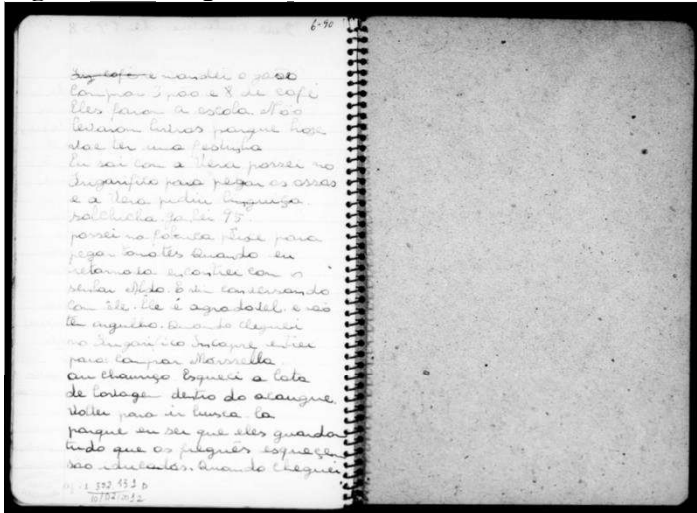 6-90
Fiz café e mandei o João
comprar 3 pao e 8 de café
Eles foram a escola Não
levaram livros porque hoje
vae ter uma festinha
Eu sai com a Vera passei no
frigorifico para pegar os ossos
e a Vera pediu linguiça
salchicha. ga lei 95.
passei na fabrica para
pegar tomates Quando eu
retornava encontrei com o
senhor Aldo. E vim conversando
com ele. Ele é agradavel. e não
tem orgulho. Quando cheguei
no frigorifico entrei
para comprar
ou Esqueci a lata
de lavagem dentro do açougue.
Voltei para ir busca. la
porque eu sei que eles guardam
tudo que os freguês esqueçem
são educados. Quando cheguei
1.352.132 D
10/02/2012